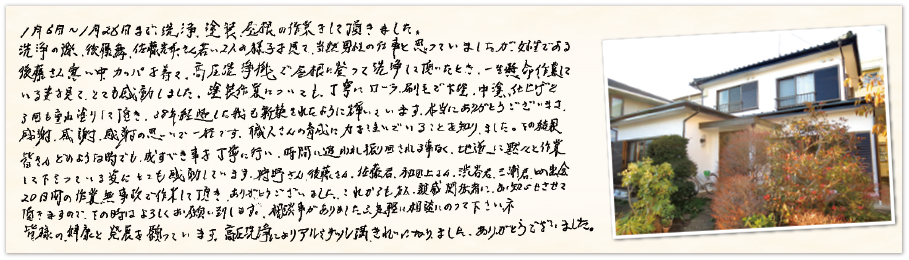 1月6日～1月28日まで洗浄、塗装、屋根の作業をして頂きました。
洗浄の際、後藤舞、佐藤 さん若い2人の様子を見て、当然男性の仕事と思っていましたが女性である
後藤さん寒い中カッパを着て、高圧洗浄機で屋根に登って洗浄して頂いたとき、一生懸命作業して
いる姿を見て、とても感動しました。塗装作業についても、丁寧にローラ、刷毛で下塗、中塗、仕上げと
3回も重ね塗りして頂き、28年経過した我も新築されたように輝いています。本当にありがとうございます。
感謝、感謝、感謝の思いで一杯です。職人さんの育成に力をそそいでいることを知りました。その結果
皆さんどのような時でも、成すべき事を丁寧に行い、時間に追われ振り回される事なく、地道に黙々と作業
して下さっている姿にとても感動しています。狩野さん、後藤さん、佐藤君、 さん、渋谷君、三瀬君、の出会
20日間の作業無事故で作業して頂き、ありがとうございました。これからも友人、親戚関係者に、お知らせさせて
頂きますので、その時はよろしくお願い致します。相談事がありましたら気軽に相談にのって下さいネ
皆様の健康と発展を願っています。高圧洗浄によりアルミサッシ溝きれいになりました。ありがとうございました。